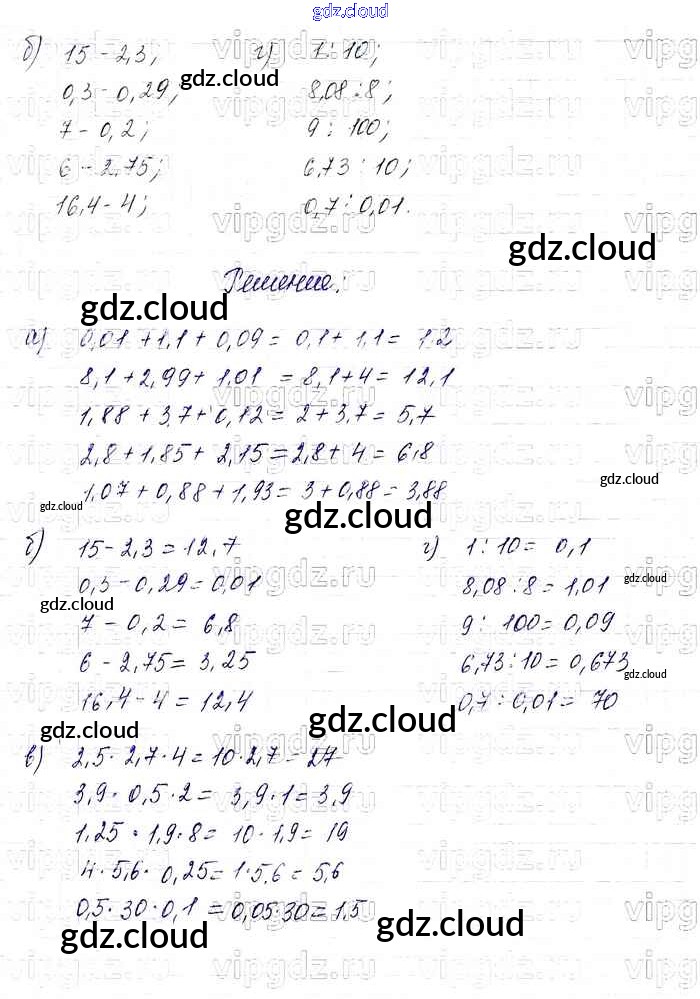 gdz.cloud
б) 15 - 2,3; г) 1 : 10;
0,3 - 0,29; 8,08 : 8;
7 - 0,2; 9 : 100;
6 - 2,75; 6,73 : 10;
16,4 - 4; 0,7 : 0,01.
Решение:
а) 0,01 + 1,1 + 0,09 = 0,1 + 1,1 = 1.2
8,1 + 2,99 + 1,01 = 8,1 + 4 = 12,1
1,88 + 3,7 + 0,12 = 2 + 3,7 = 5,7
2,8 + 1,85 + 2,15 = 2,8 + 4 = 6,8
1,07 + 0,88 + 1,93 = 3 + 0,88 = 3,88
б) 15 - 2,3 = 12,7 г) 1 : 10 = 0,1
0,3 - 0,29 = 0,01 8,08 : 8 = 1,01
7 - 0,2 = 6,8 9 : 100 = 0,09
6 - 2,75 = 3,25 6,73 : 10 = 0,673
16,4 - 4 = 12,4 0,7 : 0,01 = 70
в) 2,5 · 2,7 · 4 = 10 · 2,7 = 27
3,9 · 0,5 · 2 = 3,9 · 1 = 3,9
1,25 · 1,9 · 8 = 10 · 1,9 = 19
4 · 5,6 · 0,25 = 1 · 5,6 = 5,6
0,5 · 30 · 0,1 = 0,05 · 30 = 1,5
gdz.cloud
gdz.cloud
gdz.cloud
gdz.cloud
gdz.cloud
gdz.cloud
gdz.cloud
gdz.cloud
gdz.cloud
gdz.cloud
gdz.cloud
gdz.cloud
gdz.cloud
gdz.cloud
vipgdz.ru